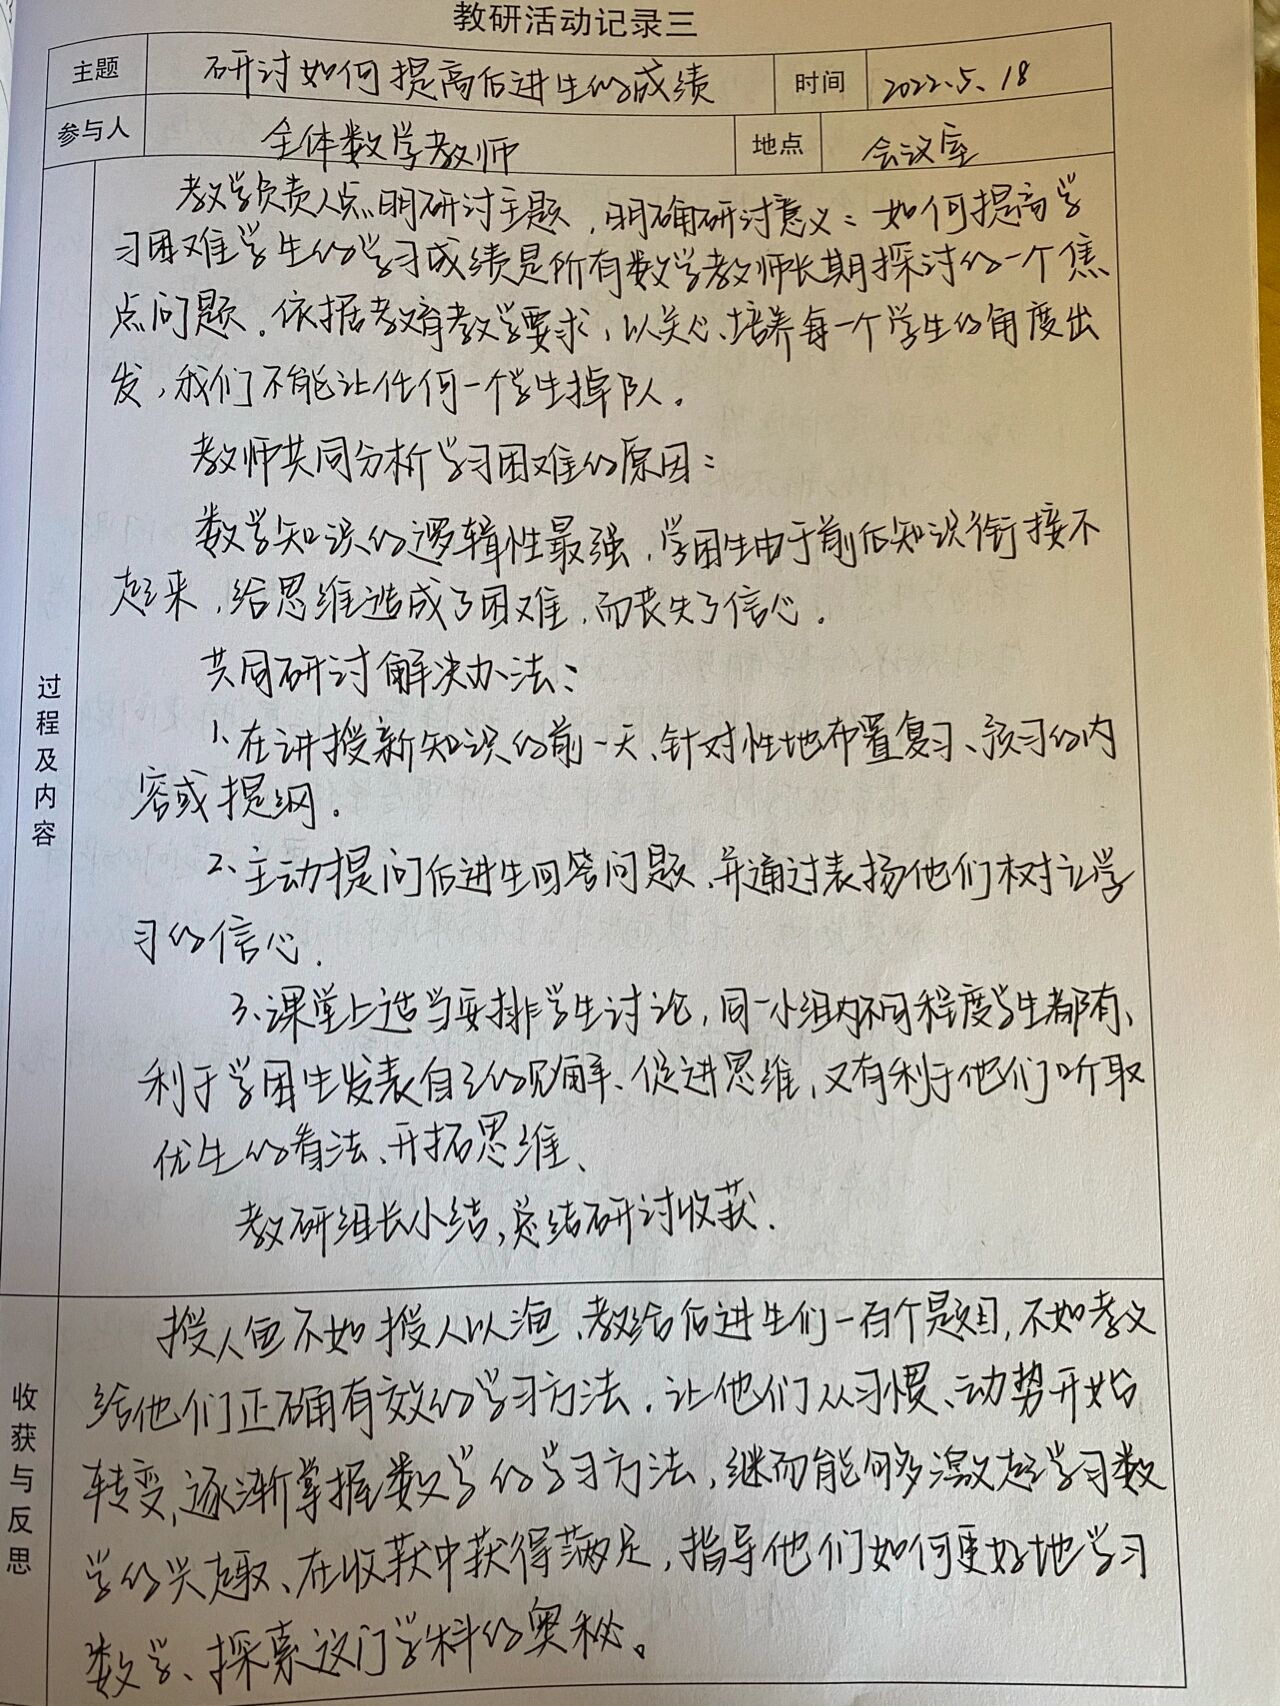 教研活动记录三
主题 研讨如何提高后进生的成绩 时间 2022.5.18
参与人 全体数学教师 地点 会议室
过程及内容
教学负责人点明研讨主题，明确研讨意义：如何提高学
习困难学生的学习成绩是所有数学教师长期探讨的一个焦
点问题。依据教育教学要求，以关心、培养每一个学生的角度出
发，我们不能让任何一个学生掉队。
教师共同分析学习困难的原因：
数学知识的逻辑性最强，学困生由于前后知识衔接不
起来，给思维造成了困难，而丧失了信心。
共同研讨解决办法：
1、在讲授新知识的前一天、针对性地布置复习、预习的内
容或提纲。
2、主动提问后进生回答问题、并通过表扬他们树立学
习的信心。
3、课堂上适当安排学生讨论，同一小组内不同程度学生都有、
利于学困生发表自己的见解、促进思维，又有利于他们听取
优生的看法、开拓思维、
教研组长小结，总结研讨收获．
收获与反思
授人鱼不如授人以渔、教给后进生们一百个题目，不如教
给他们正确有效的学习方法．让他们从习惯、动势开始
转变，逐渐掌握数学的学习方法，继而能够激起学习数
学的兴趣、在收获中获得满足，指导他们如何更好地学习
数学、探索这门学科的奥秘。